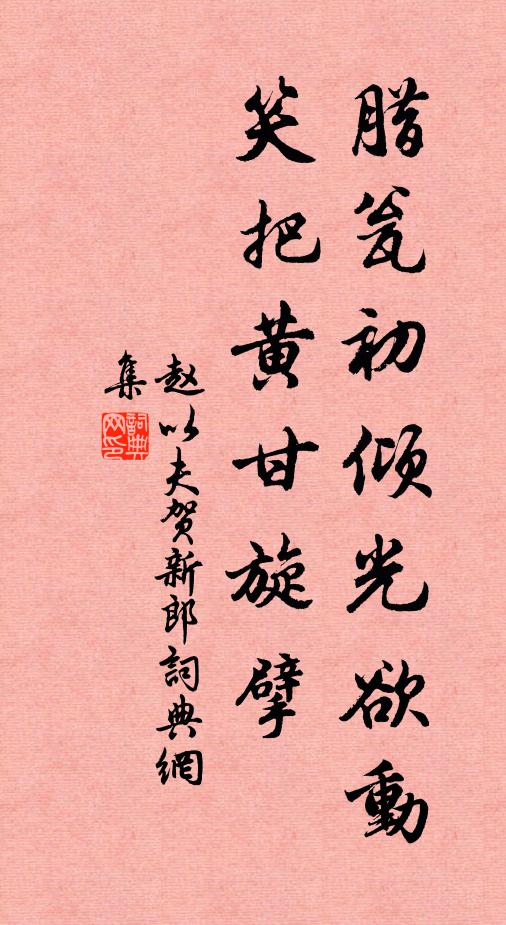 腊瓮初倾光欲動
笑把黄甘旋擘
赵以夫贺新郎詞典網
集
詞典网印